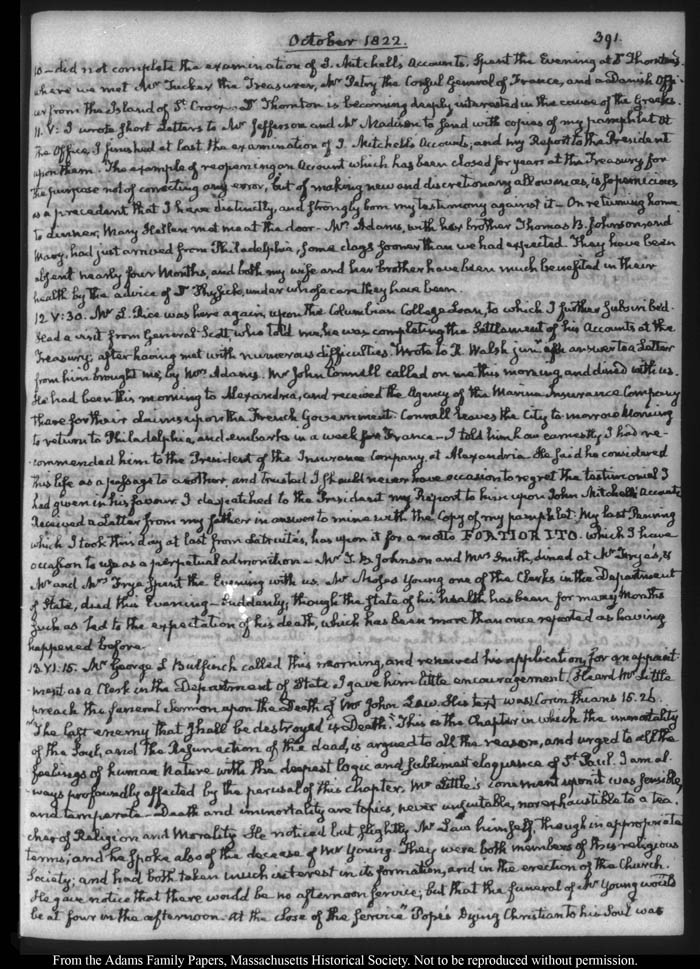 October 1822. 391.
10 – did not complete the examination of J. Mitchell's Accounts. Spent the Evening at Dr Thornton's,
where we met Mr Tucker the Treasurer, Mr Petry the Consul General of France, and a Danish Offi-
cer from the Island of St Croix – Dr Thornton is becoming deeply interested in the cause of the Greeks.
11. V: I wrote short Letters to Mr Jefferson and Mr Madison to send with copies of my pamphlet At
the Office, I finished at last the examination of J. Mitchell's Accounts; and my Report to the President
upon them. The example of reopening an Account which has been closed for years at the Treasury, for
the purpose not of correcting any error, but of making new and discretionary allowances, is so pernicious,
as a precedent that I have distinctly, and strongly born my testimony against it – On returning home
to dinner, Mary Hellen met me at the door – Mrs Adams, with her brother Thomas B. Johnson, and
Mary, had just arrived from Philadelphia, some days sooner than we had expected. They have been
absent nearly four Months, and both my wife and her brother have been much benefited in their
health by the advice of Dr Physick, under whose care they have been.
12 V:30. Mr L. Rice was here again, upon the Columbian College Loan, to which I further subscribed.
Had a visit from General Scott, who told me, he was completing the Settlement of his Accounts at the
Treasury; after having met with numerous difficulties. Wrote to R. Walsh junr. an answer to a Letter
from him brought me, by Mrs Adams. Mr John Connell called on me this morning, and dined with us.
He had been this morning to Alexandria, and received the Agency of the Marine Insurance Company
there for their claims upon the French Government. Connell leaves the City to-morrow Morning
to return to Philadelphia, and embarks in a week for France – I told him how earnestly I had re-
commended him to the President of the Insurance Company, at Alexandria. He said he considered
this life as a passage to another, and trusted I should never have occasion to regret the testimonial I
had given in his favour. I despatched to the President my Report to him upon John Mitchell's Accounts
Received a Letter from my father in answer to mine with the Copy of my pamphlet. My last Pruning
which I took this day at last from has upon it for a motto FORTIOR ITO. which I have
occasion to use as a perpetual admonition – Mr T. B Johnson and Mrs Smith, dined at Mr Frye's, &
Mr and Mrs Frye spent the Evening with us. Mr Moses Young one of the Clerks in the Department
of State, died this Evening – Suddenly; though the state of his health has been for many Months
such as led to the expectation of his death, which has been more than once reported as having
happened before.
13. VI:15. Mr George L Bulfinch called this morning, and renewed his application, for an appoint-
ment as a Clerk in the Department of State. I gave him little encouragement. Heard Mr Little
preach the funeral Sermon upon the Death of Mr John Law. His text was 1. Corinthians 15. 26.
"The last enemy that shall be destroyed is Death." This is the Chapter in which the immortality
of the Soul, and the Resurrection of the dead, is argued to all the reason, and urged to all the
feelings of human Nature with the deepest logic and sublimest eloquence of St Paul. I am al-
ways profoundly affected by the perusal of this chapter. Mr Little's comment upon it was sensible,
and temperate – Death and immortality are topics, never unsuitable, nor exhaustible to a tea-
cher of Religion and Morality. He noticed but slightly Mr Law himself, though in appropriate
terms; and he spoke also of the decease of Mr Young. They were both members of this religious
Society; and had both taken much interest in its formation, and in the erection of the Church.
He gave notice that there would be no afternoon service; but that the funeral of Mr Young would
be at four in the afternoon. At the close of the service "Pope's Dying Christian to his Soul was
From the Adams Family Papers, Massachusetts Historical Society. Not to be reproduced without permission.